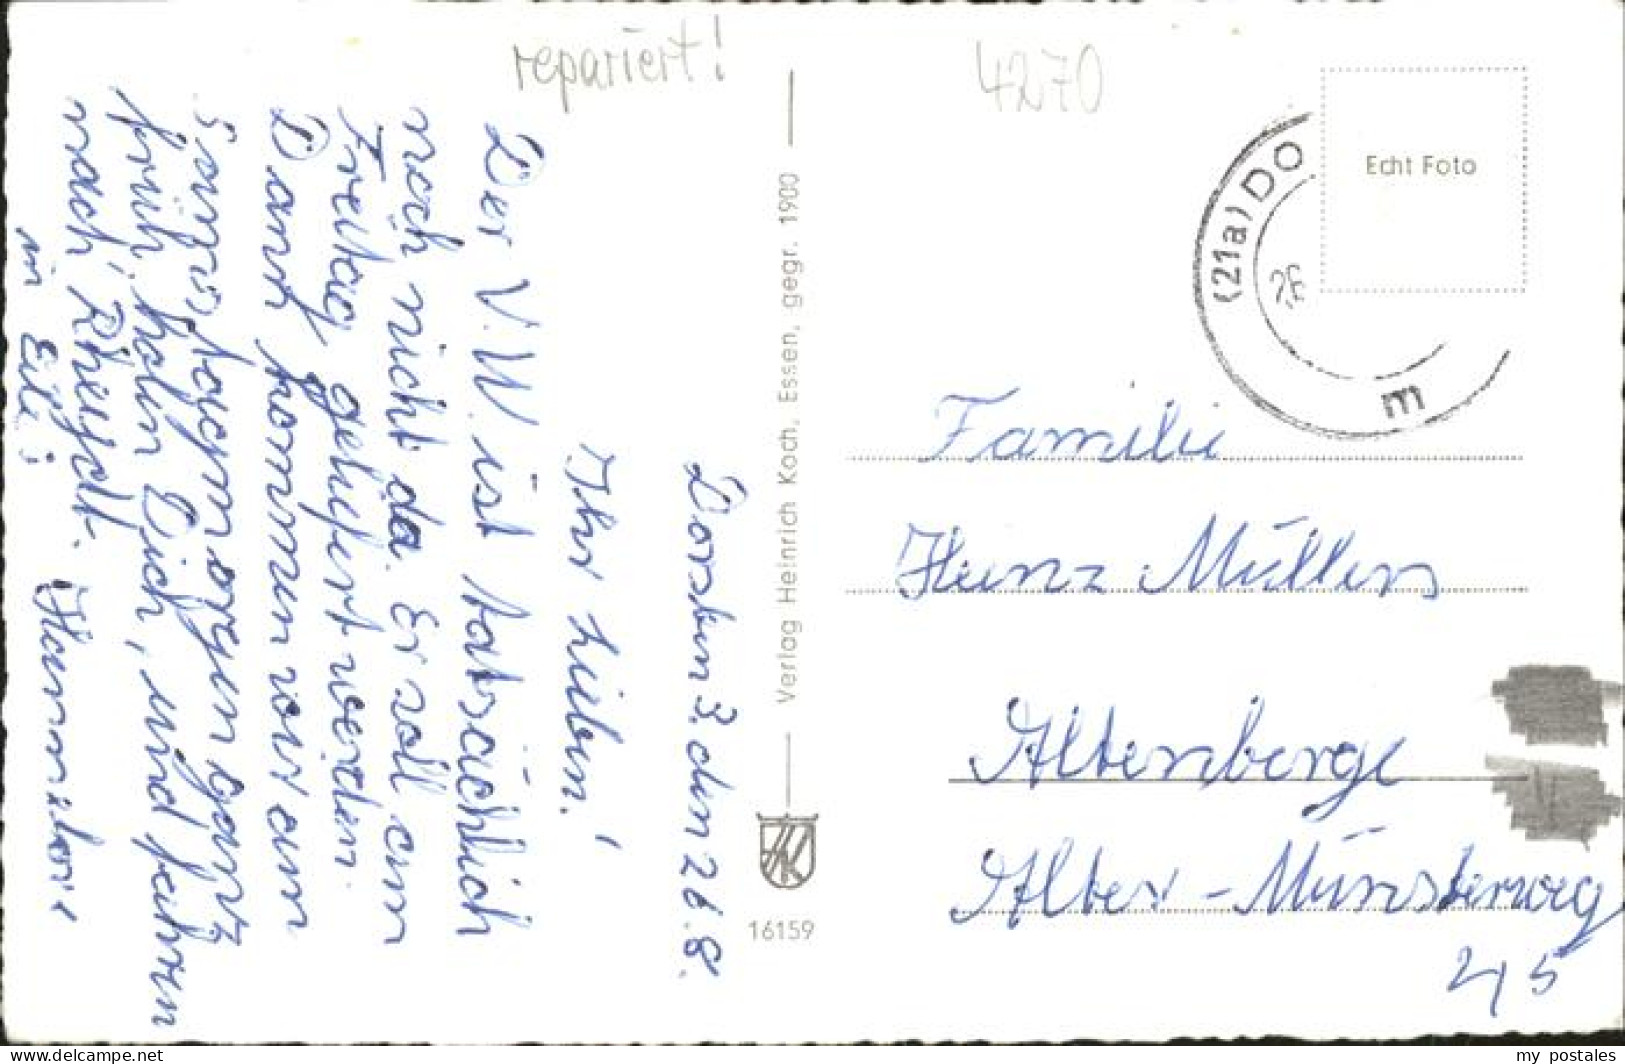 repariert!
4270
Echt Foto
(21a) DO
26
m
Dorsten 3. den 26.8.
Ihr Lieben!
Der V.W. ist tatsächlich
noch nicht da. Er soll am
Freitag geliefert werden.
Dann kommen wir am
Samstagmorgen ganz
früh, holen Dich, und fahren
nach Rheydt.
in Eile;
Hannelore
Verlag Heinrich Koch, Essen, gegr. 1900
HK
16159
Familie
Heinz Müllers
Altenberge
Alter-Münsterweg
45
my postales